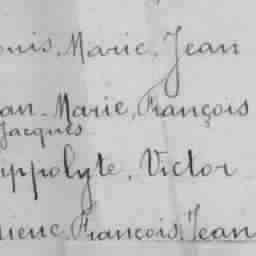 ouis, Marie, Jean
an, Marie, François
Jacques
ippolyte, Victor
rieuc, François, Jean